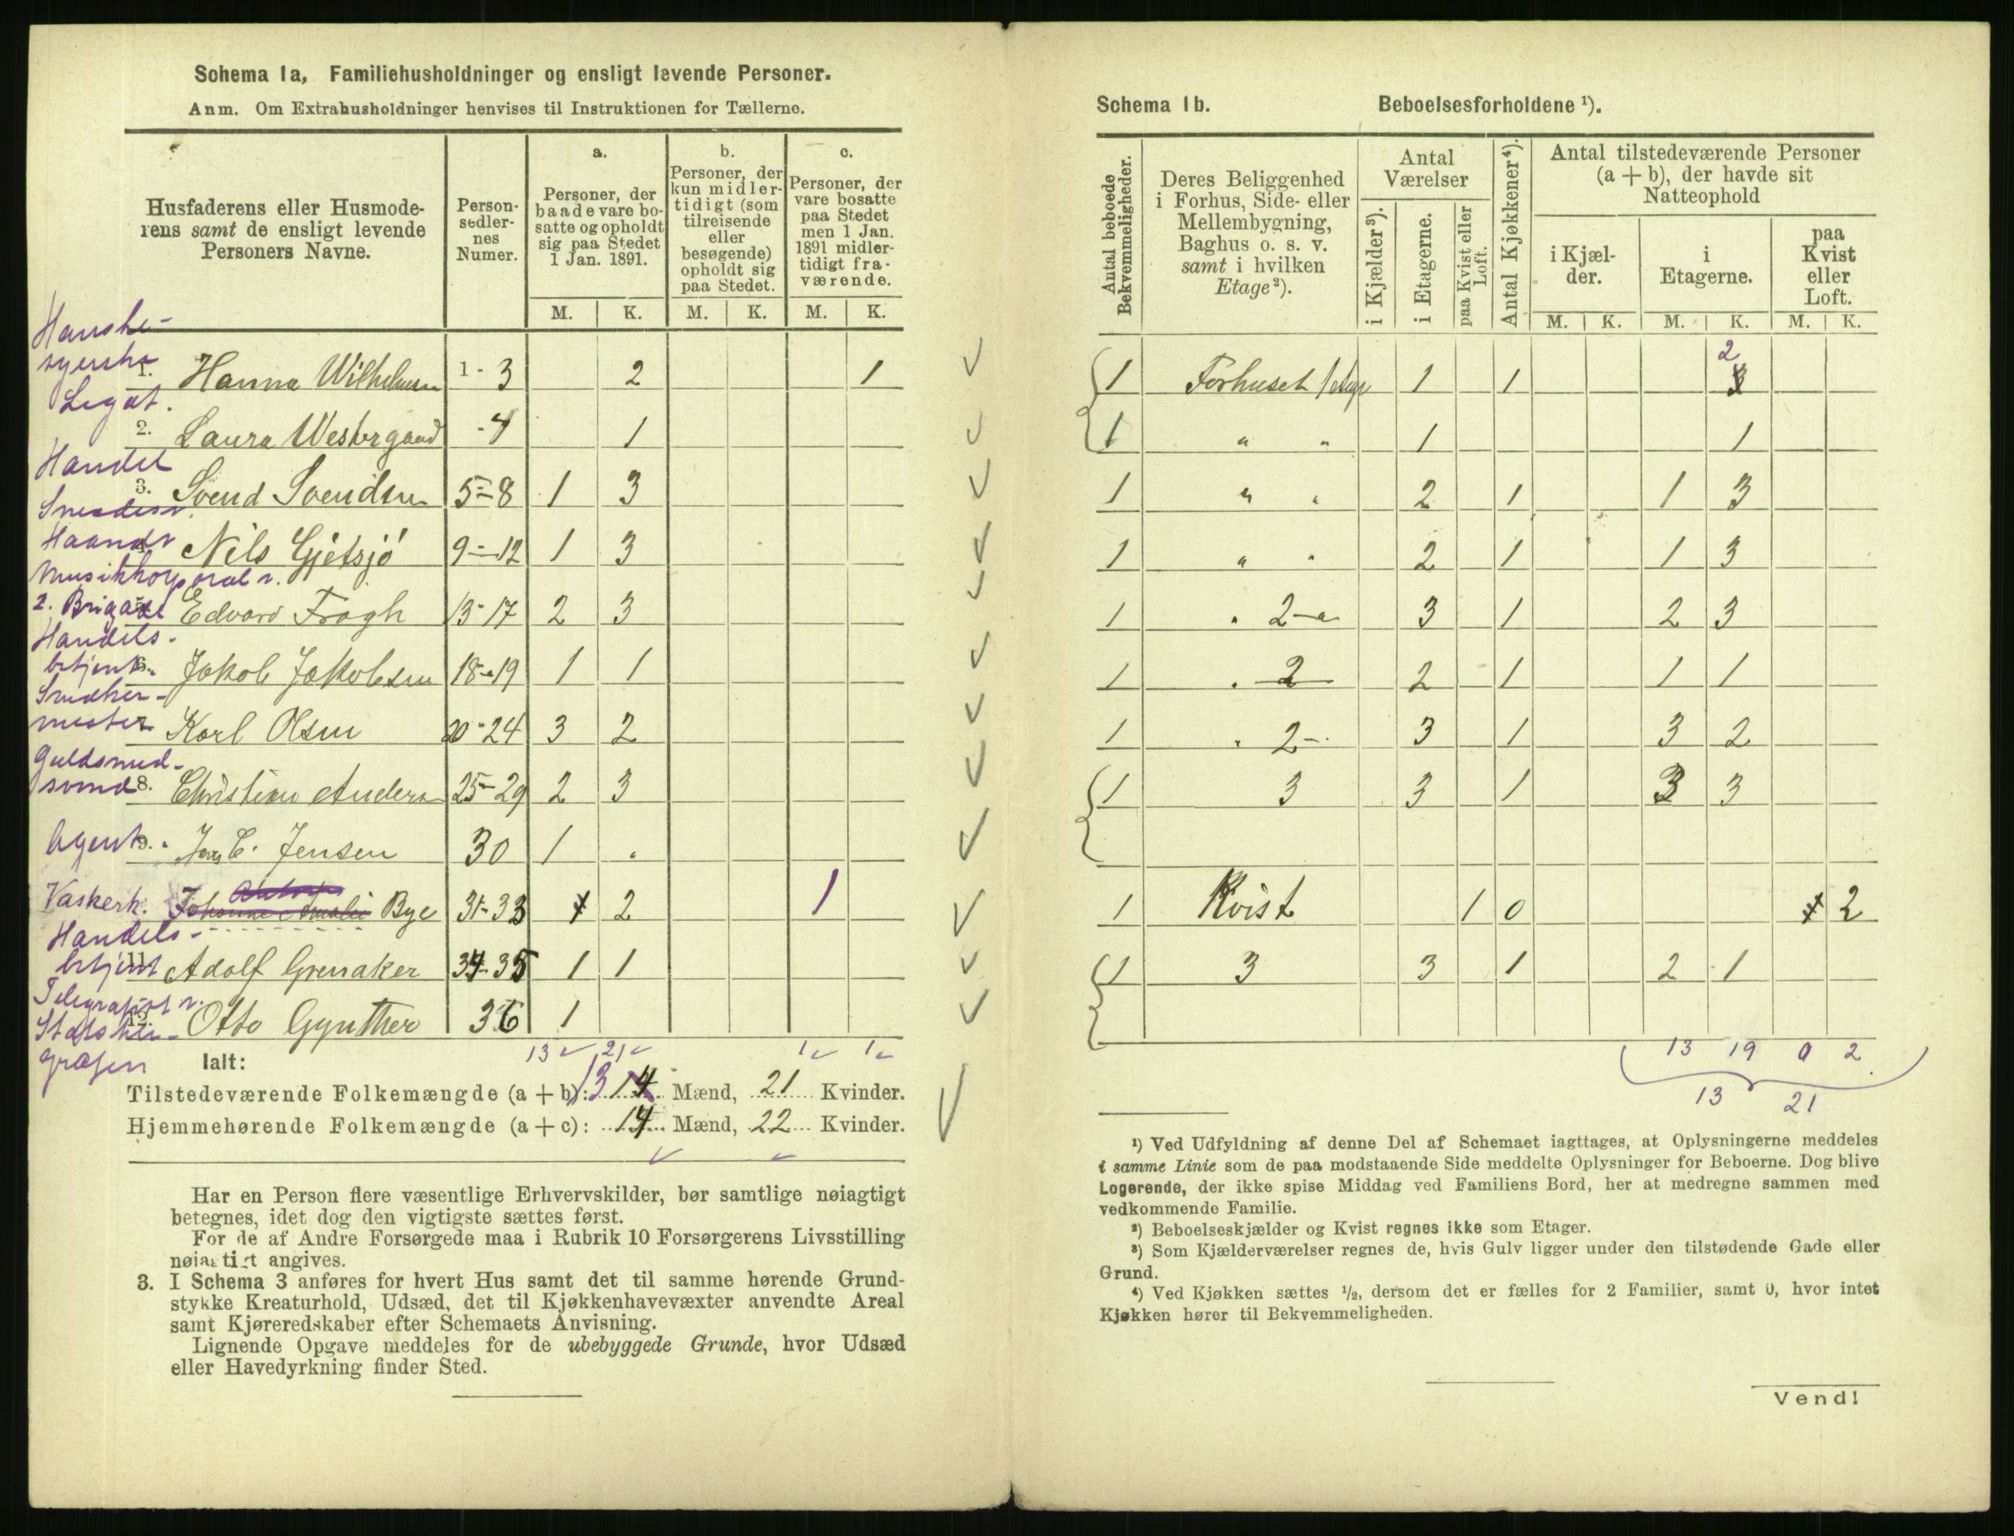 Schema 1a, Familiehusholdninger og ensligt levende Personer.
Anm. Om Extrahusholdninger henvises til Instruktionen for Tællerne.
Husfaderens eller Husmode-
rens samt de ensligt levende
Personers Navne.
Person-
sedler-
nes
Numer.
a.
Personer, der
baade vare bo-
satte og opholdt
sig paa Stedet
1 Jan. 1891.
b.
Personer, der
kun midler-
tidigt (som
tilreisende
eller
besøgende)
opholdt sig
paa Stedet.
c.
Personer, der
vare bosatte
paa Stedet
men 1 Jan.
1891 midler-
tidigt fra-
værende.
M. K. M. K. M. K.
Hanske-
syerske
Legat.
1. Hanna Wilhelmsen 1 - 3 2 1
2. Laura Westergaard - 4 1
Handel
3. Svend Svendsen 5 - 8 1 3
Snedkersv.
Haandv
Nils Gjetsjö 9 - 12 1 3
Musikkorporal v.
2. Brigade Edvard Fragh 13 - 17 2 3
Handels-
betjent
6. Jakob Jakobsen 18 - 19 1 1
Snedker-
mester Karl Olsen 20 - 24 3 2
Guldsmed-
svend 8. Christian Anders 25 - 29 2 3
Agent. 9. Jens C. Jensen 30 1 "
Vaskerk. Johanne Amalie Bye 31 - 33 2 1
Handels-
betjent 11. Adolf Grenaker 34 - 35 1 1
Telegrafist v.
Statstele-
grafen
12. Otto Gynther 36 1
Ialt: 13 21 1 1
Tilstedeværende Folkemængde (a + b): 13 14 Mænd, 21 Kvinder.
Hjemmehørende Folkemængde (a + c): 14 Mænd, 22 Kvinder.
Har en Person flere væsentlige Erhvervskilder, bør samtlige nøiagtigt
betegnes, idet dog den vigtigste sættes først.
For de af Andre Forsørgede maa i Rubrik 10 Forsørgerens Livsstilling
nøiagtigt angives.
3. I Schema 3 anføres for hvert Hus samt det til samme hørende Grund-
stykke Kreaturhold, Udsæd, det til Kjøkkenhavevæxter anvendte Areal
samt Kjøreredskaber efter Schemaets Anvisning.
Lignende Opgave meddeles for de ubebyggede Grunde, hvor Udsæd
eller Havedyrkning finder Sted.
Schema 1b. Beboelsesforholdene ¹).
Antal beboede
Bekvemmeligheder.
Deres Beliggenhed
i Forhus, Side- eller
Mellembygning,
Baghus o. s. v.
samt i hvilken
Etage ²).
Antal
Værelser
i Kjælder ³).
i Etagerne.
paa Kvist eller
Loft.
Antal Kjøkkener ⁴).
Antal tilstedeværende Personer
(a + b), der havde sit
Natteophold
i Kjæl-
der.
i
Etagerne.
paa
Kvist
eller
Loft.
M. K. M. K. M. K.
1 Forhuset 1 etage 1 1 2 3
1 " " 1 1
1 " " 2 1 1 3
1 " " 2 1 1 3
1 " 2 - " 3 1 2 3
1 " 2 2 1 1 1
1 " 2 - 3 1 3 2
1 3 3 1 3 3
1 Kvist 1 0 2
1 3 3 1 2 1
13 19 0 2
13 21
¹) Ved Udfyldning af denne Del af Schemaet iagttages, at Oplysningerne meddeles
i samme Linie som de paa modstaaende Side meddelte Oplysninger for Beboerne. Dog blive
Logerende, der ikke spise Middag ved Familiens Bord, her at medregne sammen med
vedkommende Familie.
²) Beboelseskjælder og Kvist regnes ikke som Etager.
³) Som Kjælderværelser regnes de, hvis Gulv ligger under den tilstødende Gade eller
Grund.
⁴) Ved Kjøkken sættes ½, dersom det er fælles for 2 Familier, samt 0, hvor intet
Kjøkken hører til Bekvemmeligheden.
Vend!